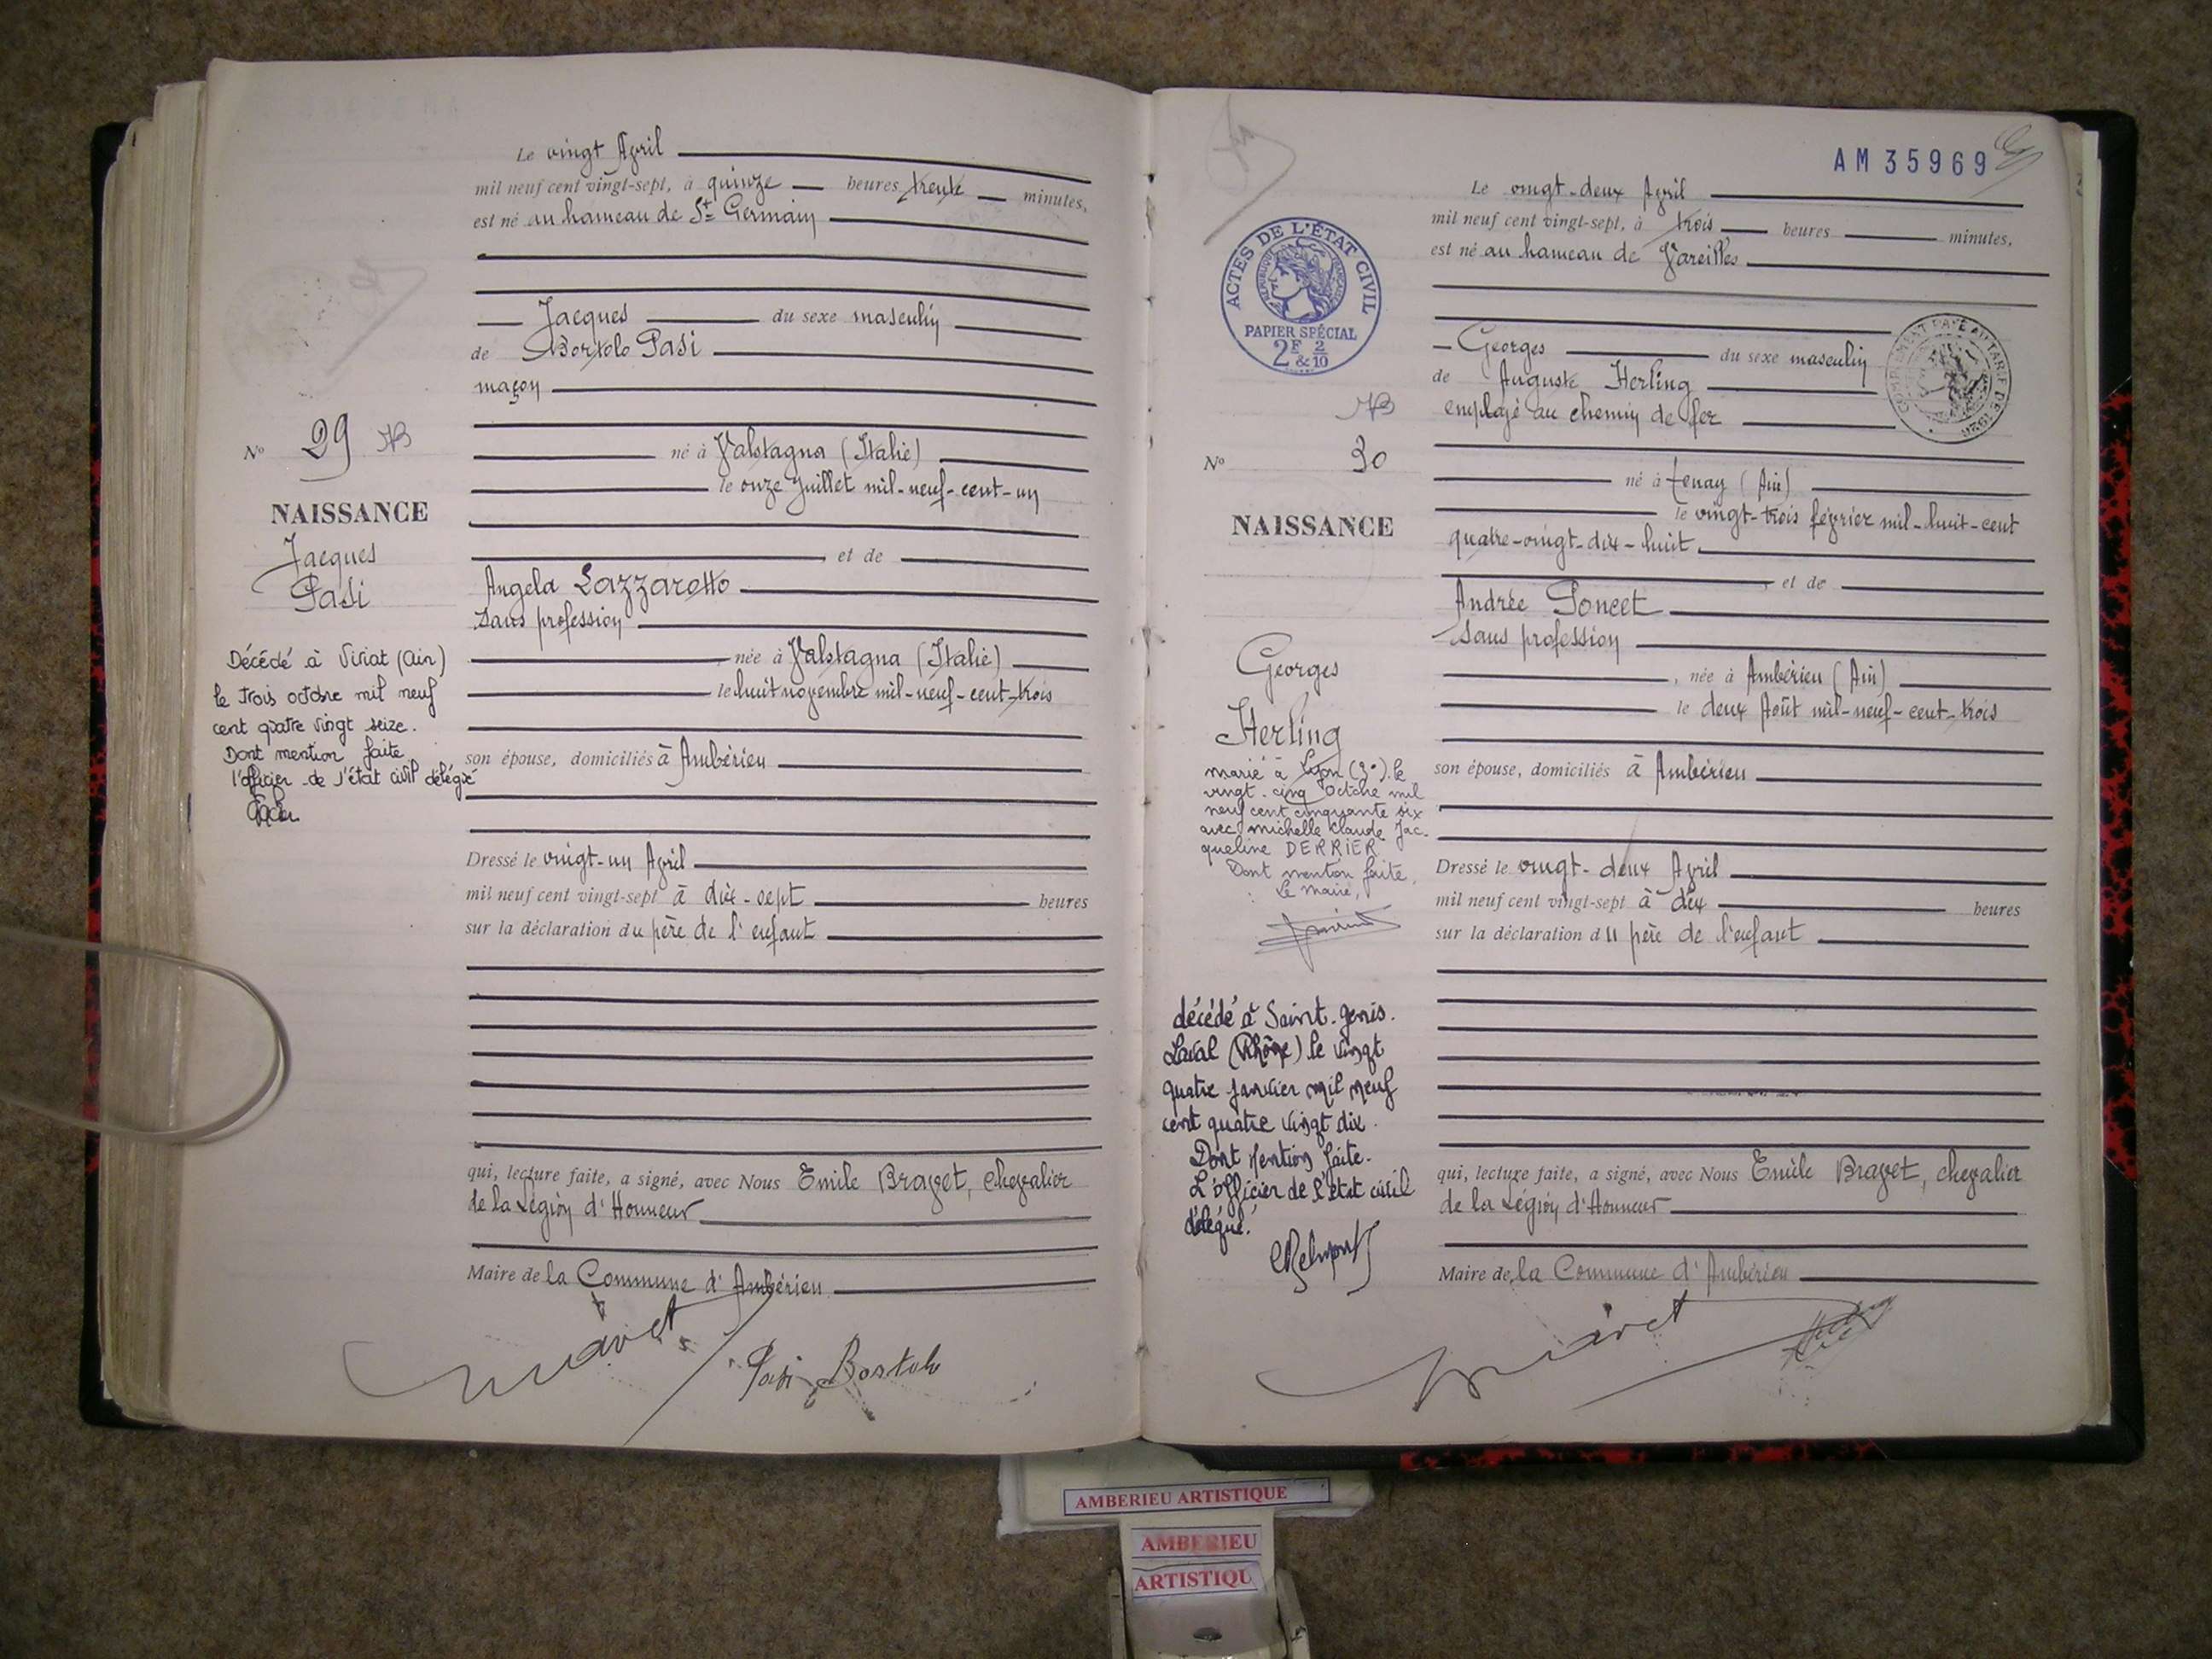 Le vingt Avril
mil neuf cent vingt-sept, à quinze heures trente minutes,
est né au hameau de St Germain
Jacques du sexe masculin
de Bortolo Pasi
maçon
né à Valstagna (Italie)
le onze Juillet mil-neuf-cent-un
et de
Angela Lazzarotto
Sans profession
née à Valstagna (Italie)
le huit novembre mil-neuf-cent-trois
son épouse, domiciliés à Ambérieu
Dressé le vingt-un Avril
mil neuf cent vingt-sept à dix-sept heures
sur la déclaration du père de l'enfant
qui, lecture faite, a signé, avec Nous Emile Bravet, chevalier
de la Légion d'Honneur
Maire de la Commune d'Ambérieu
Pasi Bortolo
No 29
NAISSANCE
Jacques
Pasi
Décédé à Viriat (Ain)
le trois octobre mil neuf
cent quatre vingt seize.
Dont mention faite
l'officier de l'état civil délégué
AM 35969
ACTES DE L'ÉTAT CIVIL
RÉPUBLIQUE FRANÇAISE
PAPIER SPÉCIAL
2F & 2/10
Le vingt-deux Avril
mil neuf cent vingt-sept, à trois heures minutes,
est né au hameau de Vareilles
Georges du sexe masculin
COMPLÉMENT PAYÉ AU TARIF DE 1926
de Auguste Herling
employé au chemin de fer
né à Tenay (Ain)
le vingt-trois février mil-huit-cent
quatre-vingt-dix-huit
et de
Andrée Poncet
Sans profession
, née à Ambérieu (Ain)
le deux Août mil-neuf-cent-trois
son épouse, domiciliés à Ambérieu
Dressé le vingt-deux Avril
mil neuf cent vingt-sept à dix heures
sur la déclaration du père de l'enfant
qui, lecture faite, a signé, avec Nous Emile Bravet, chevalier
de la Légion d'Honneur
Maire de la Commune d'Ambérieu
No 30
NAISSANCE
Georges
Herling
marié à Lyon (3e) le
vingt-cinq Octobre mil
neuf cent cinquante six
avec Michelle Klaude Jac-
queline DERRIER
Dont mention faite,
Le Maire,
décédé à Saint-Genis.
Laval (Rhône) le vingt
quatre janvier mil neuf
cent quatre vingt dix.
Dont Mention faite.
L'Officier de l'état civil
délégué.
AMBERIEU ARTISTIQUE
AMBERIEU
ARTISTIQU